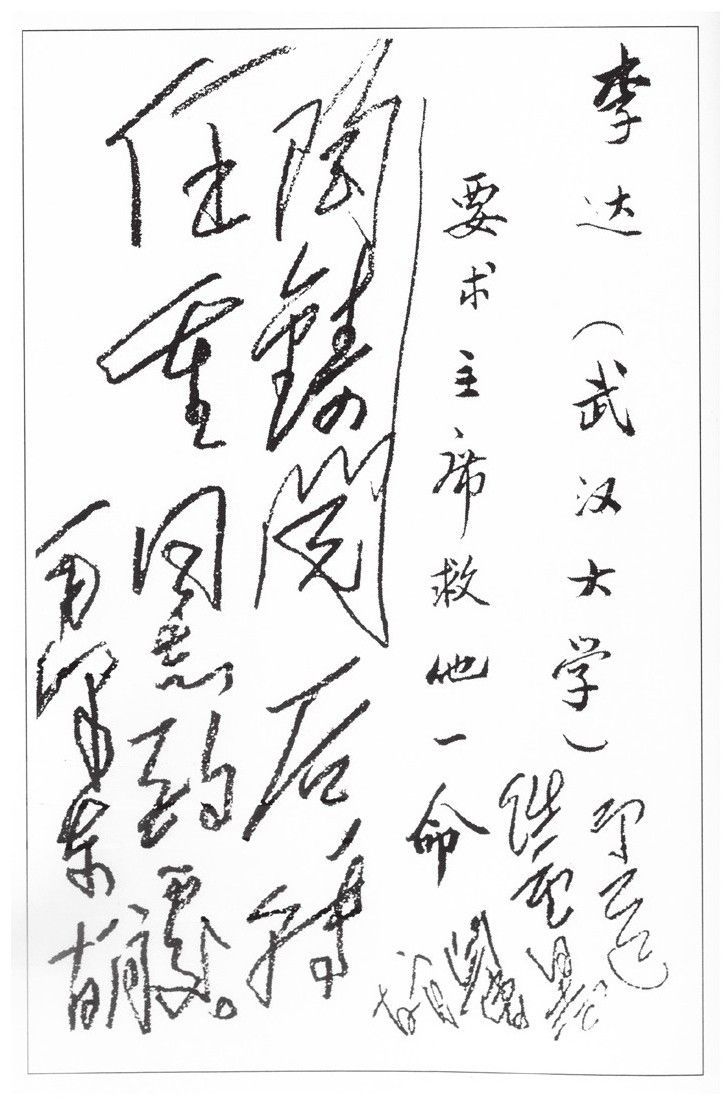 李达（武汉大学）
要求主席救他一命
陶鑄阅后转
任重同志酌處。
毛泽东